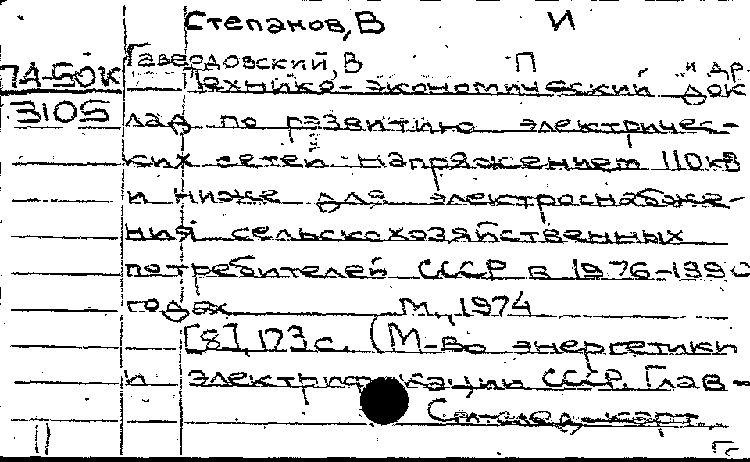 Степанов, В И
Гаведовский, В П и др.
74-50к Технико-экономический док
3105 лад по развитию электричес-
ких сетей напряжением 110кв
и ниже для электроснабже-
ния сельскохозяйственных
потребителей СССР в 1976-1990
годах М., 1974
[8], 173 с. (М-во энергетики
и электрификации СССР. Глав-
См. след. карт.